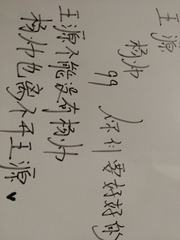 王源
杨
99 你们要好好的
王源不能没有杨
杨也离不开王源♥